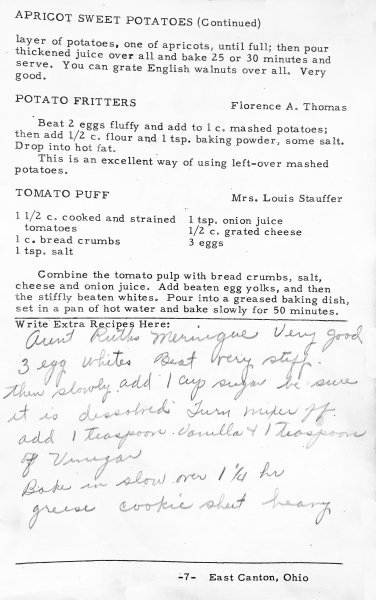 APRICOT SWEET POTATOES (Continued)
layer of potatoes, one of apricots, until full; then pour
thickened juice over all and bake 25 or 30 minutes and
serve. You can grate English walnuts over all. Very
good.
POTATO FRITTERS Florence A. Thomas
Beat 2 eggs fluffy and add to 1 c. mashed potatoes;
then add 1/2 c. flour and 1 tsp. baking powder, some salt.
Drop into hot fat.
This is an excellent way of using left-over mashed
potatoes.
TOMATO PUFF Mrs. Louis Stauffer
1 1/2 c. cooked and strained
tomatoes
1 c. bread crumbs
1 tsp. salt
1 tsp. onion juice
1/2 c. grated cheese
3 eggs
Combine the tomato pulp with bread crumbs, salt,
cheese and onion juice. Add beaten egg yolks, and then
the stiffly beaten whites. Pour into a greased baking dish,
set in a pan of hot water and bake slowly for 50 minutes.
Write Extra Recipes Here:
Aunt Ruths Meringue Very good
3 egg whites Beat very stiff.
then slowly add 1 cup sugar be sure
it is dissolved Turn mixer off
add 1 teaspoon Vanilla & 1 teaspoon
of Vinegar
Bake in slow oven 1 1/4 hr
grease cookie sheet heavy
-7- East Canton, Ohio